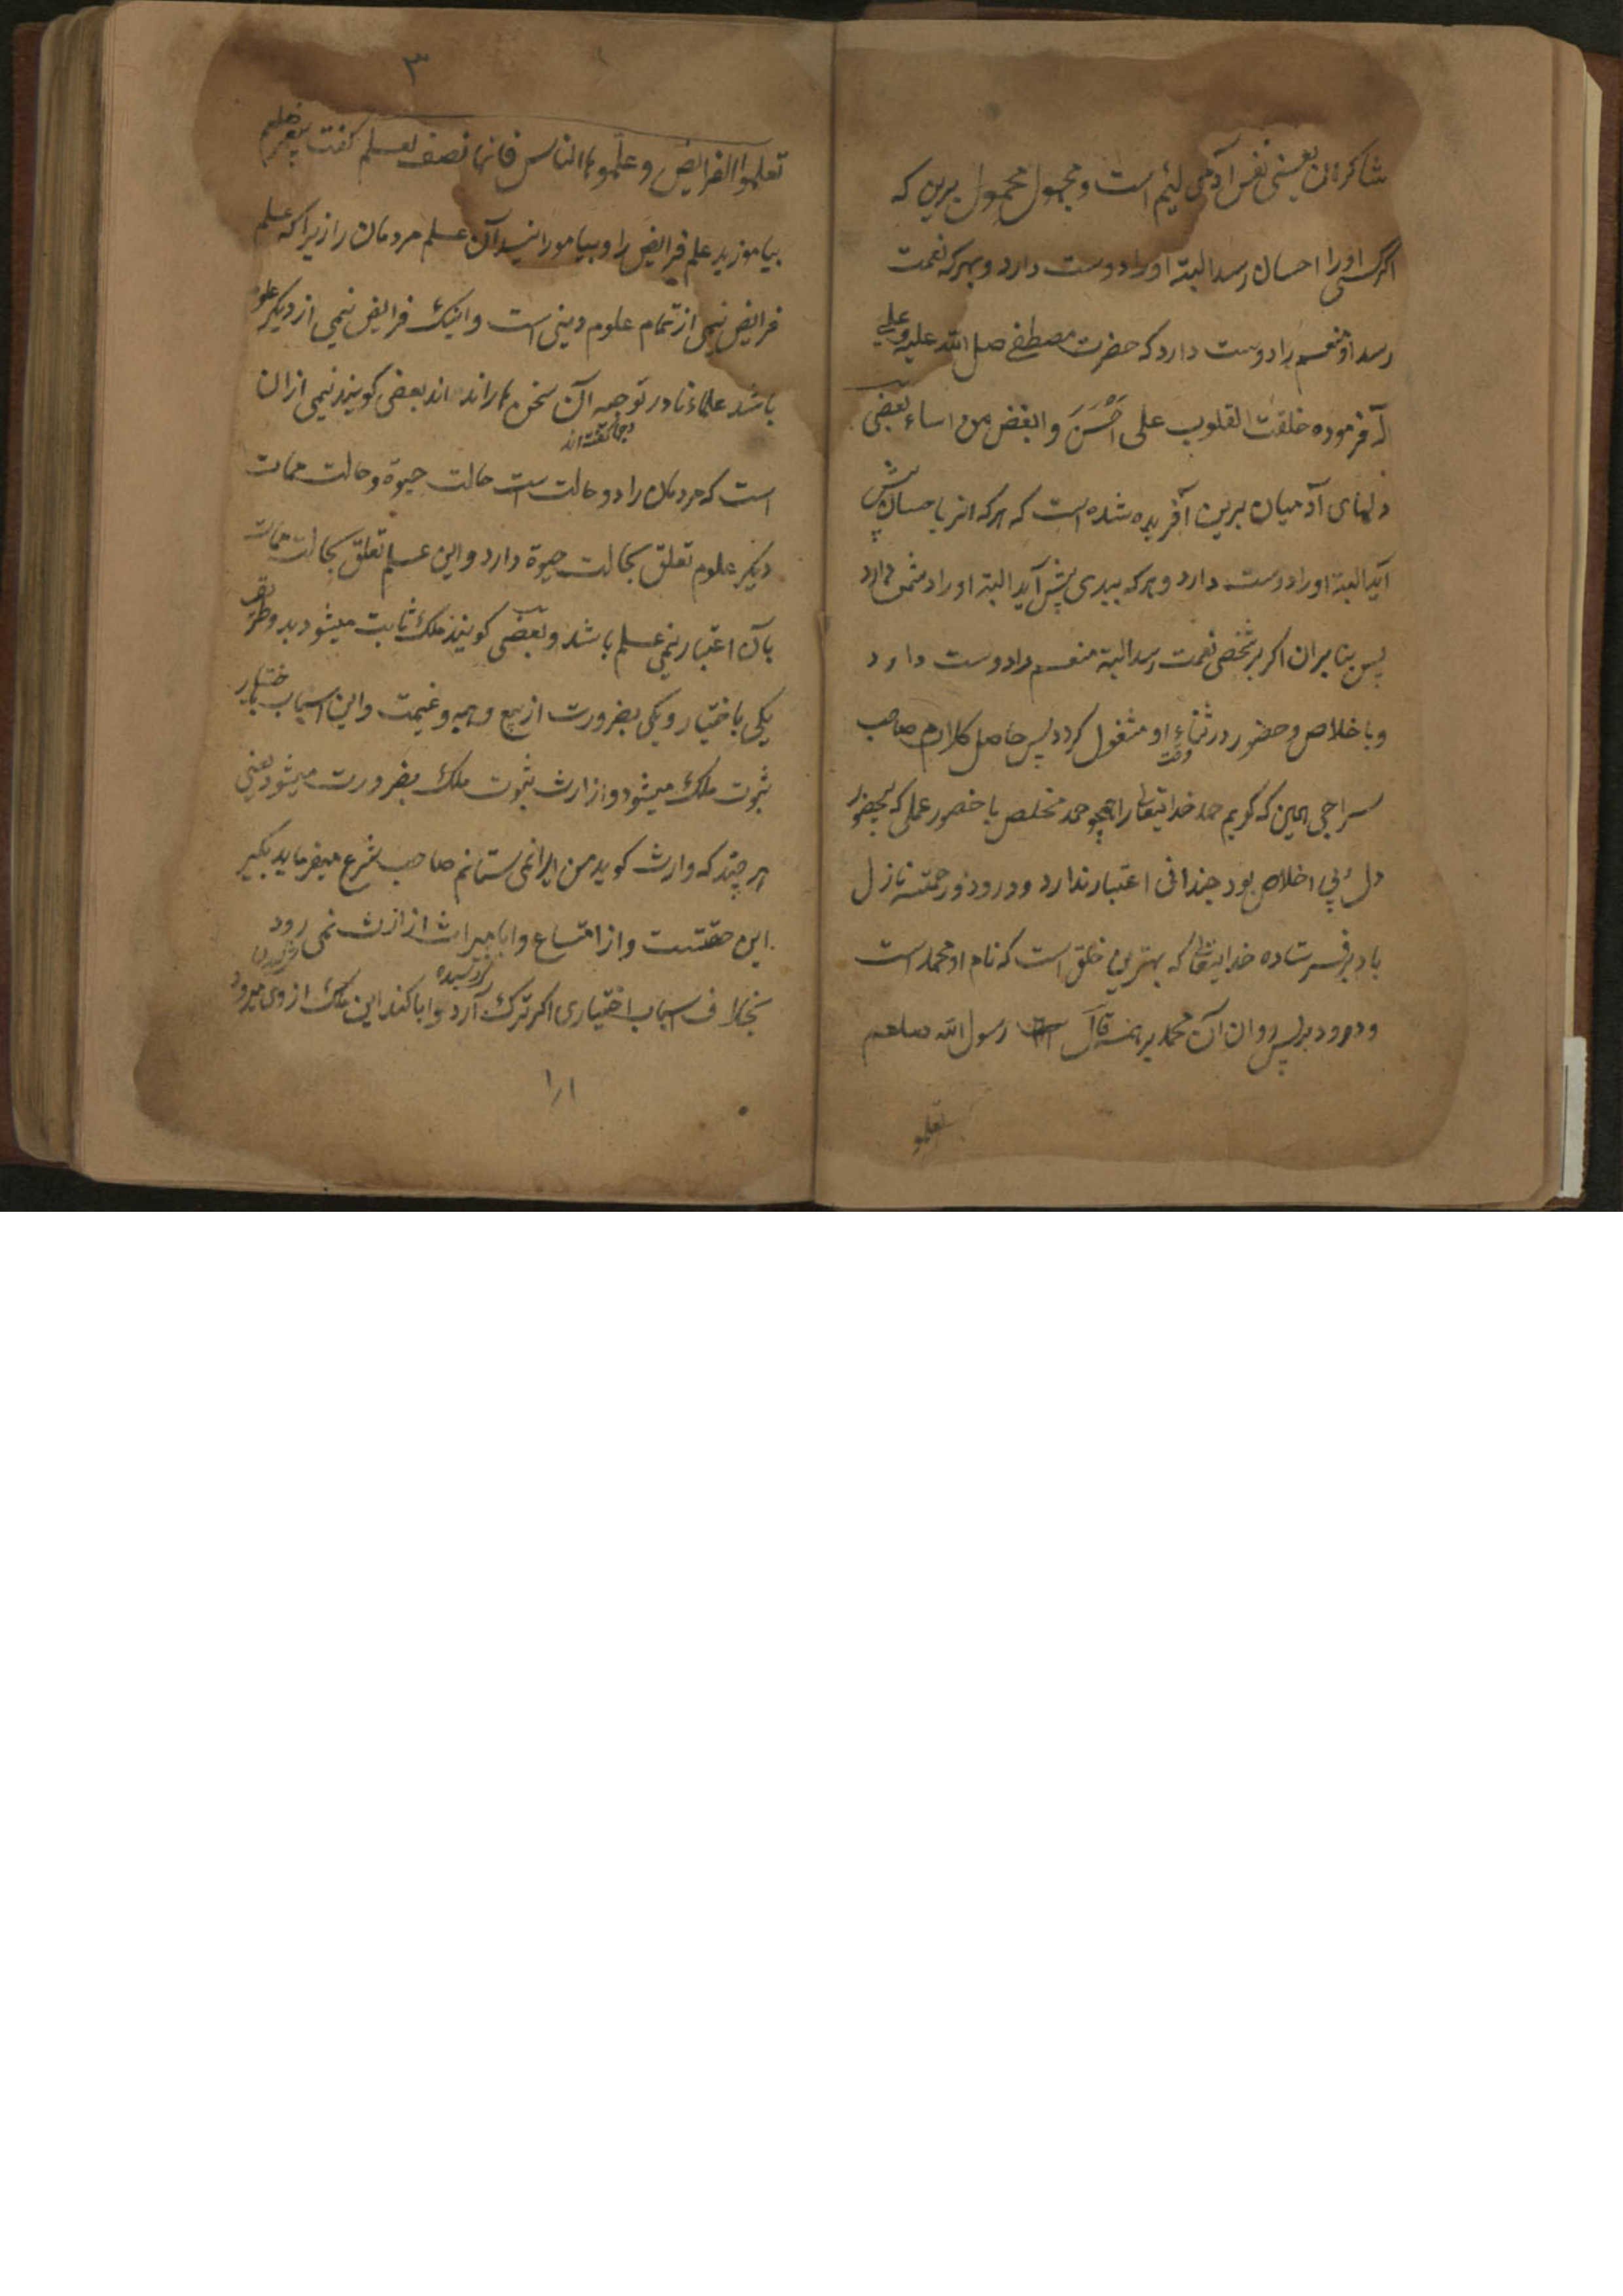 شاکران یعنی نفس آدمی لئیم است و مجهول محمول برین که
اگر کسی اورا احسان رسد البته اورا دوست دارد و بهر که نعمت
رسد او منعم را دوست دارد که حضرت مصطفی صل الله علیه وعلی
آله فرموده خلقت القلوب علی اَحْسَنَ و ابغض من اساء یعنی
دلهای آدمیان برین آفریده شده است که هر که از باحسان پیش
آید البته اورا دوست دارد و هر که ببدی پیش آید البته اورا دشمن دارد
پس بنابران اکر بر شخصی نعمت رسد البته منعم را دوست دارد
و باخلاص و حضور در ثناء او مشغول کردد پس حاصل کلام صاحب
وقت
سراجی همین که کویم حمد خدایتعالی را همچو حمد مخلص با حضور عملی که بحضور
دل بی اخلاص بود چندانی اعتبار ندارد و درود و رحمت نازل
باد بر فرستاده خدایتعالی که بهترین خلق است که نام او محمد است
و درود بر پس روان آن محمد برهمه قال رسول الله صلعم
تعلمو
٣
تعلموا الفرایض و علموها الناس فانها نصف لعلم کفت پیغمبر صلعم
بیاموزید علم فرایض را و بیامورانید آن علم مردمان را زیرا که علم
فرایض نیمی از تمام علوم دینی است و اینک فرایض نیمی از دیکر علوم
باشد علماء نا در توجیه آن سخن ها رانده اند بعضی کویند نیمی ازان
وجها کفته اند
است که مردمان را دو حالت است حالت حیوة و حالت ممات
دیکر علوم تعلق بحالت حیوة دارد و این علم تعلق بحالت ممات
بآن اعتبار نیمی علم باشد و بعضی کویند ملک ثابت میشود بدو طریق
یکی باختیار و یکی بضرورت از بیع و هبه و غیمت و این اسباب باختیار
ثبوت ملک میشود و از ارث ثبوت ملک بضرورت میشود یعنی
هر چند که وارث کوید من این را نمی ستانم صاحب شرع میفرماید بکیر
این حق تست و از امتناع و ابا میراث از ارث نمی رود
بخلاف اسباب اختیاری اکر ترک آرد و ابا کند این ملک از وی میرود